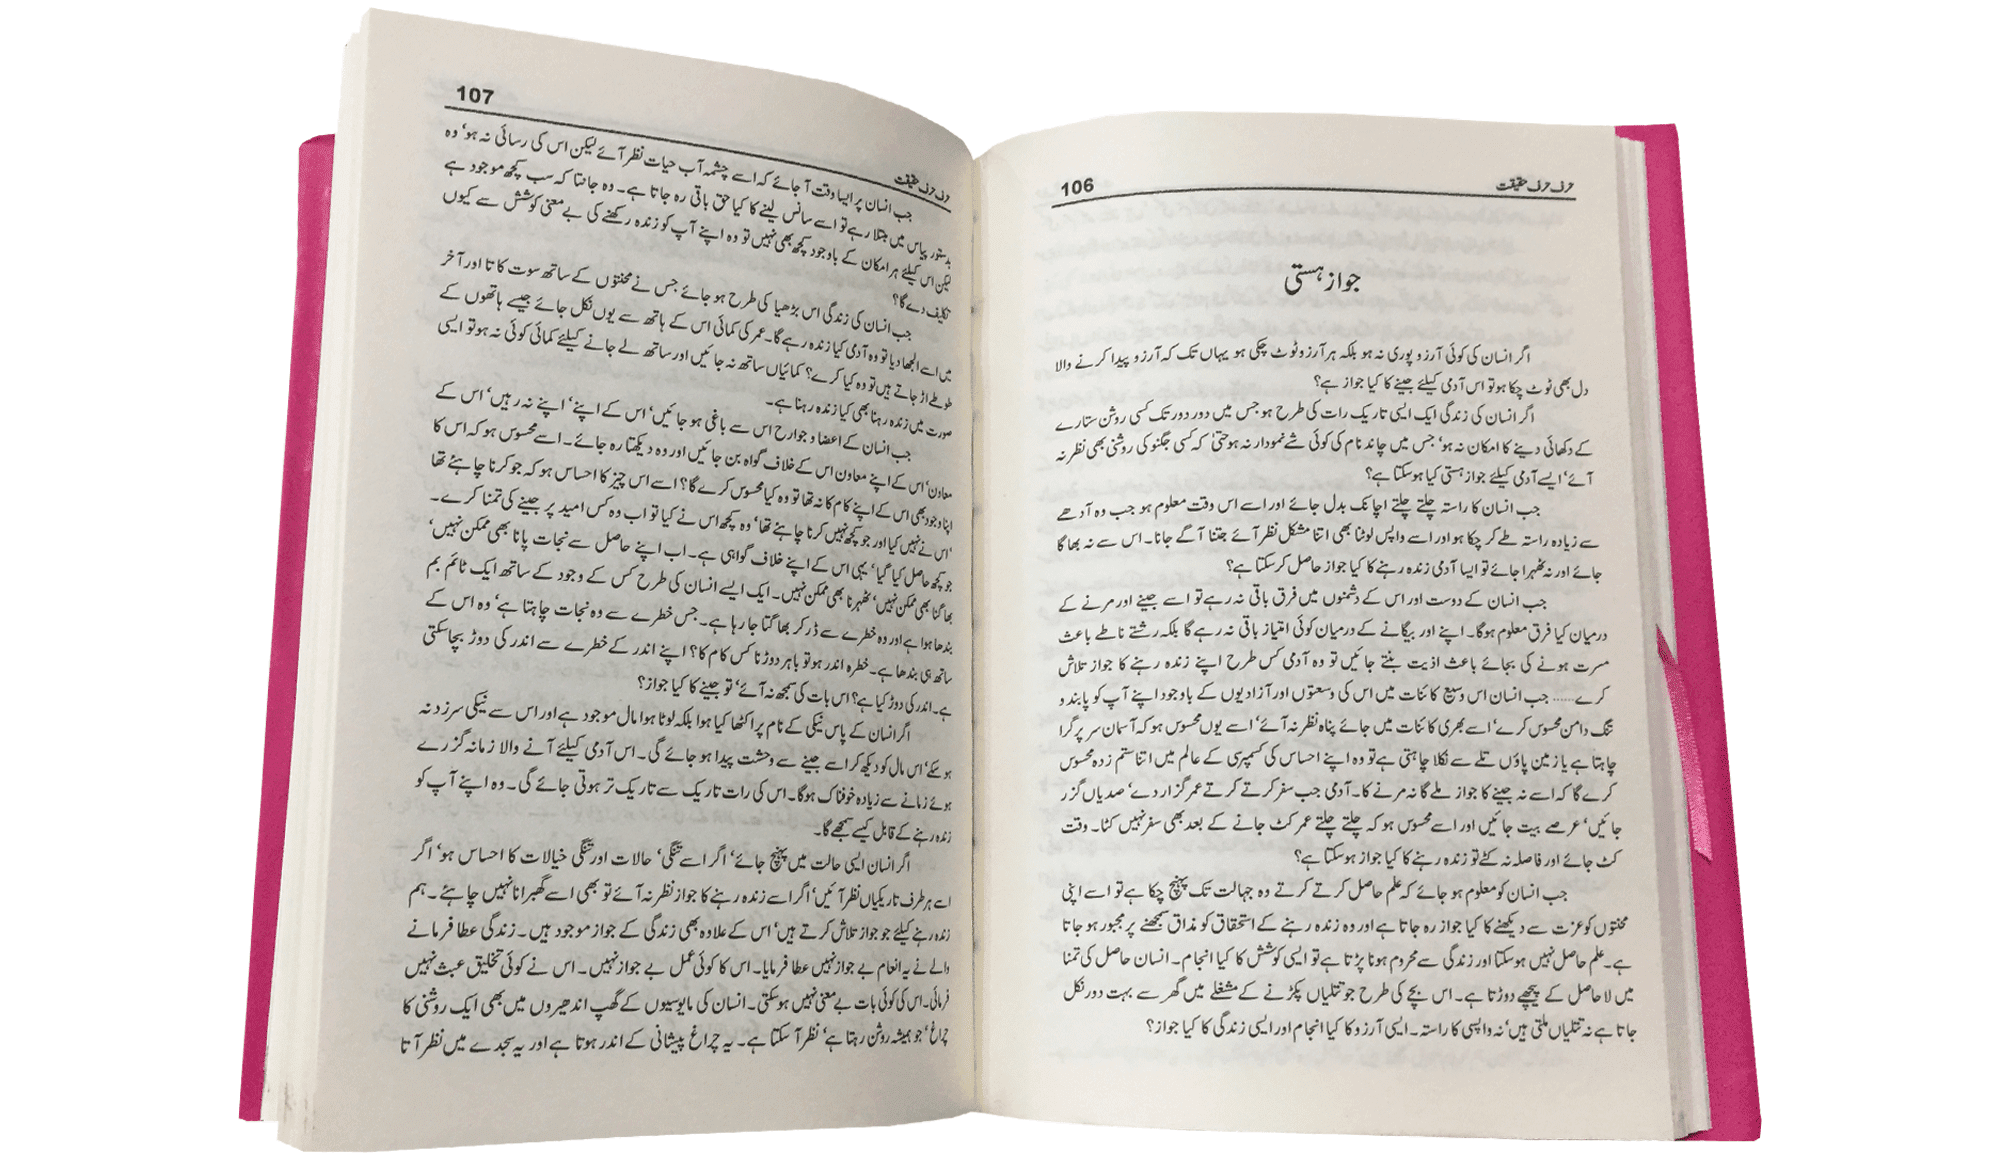 حرف حرف حقیقت
106
جواز ہستی
اگر انسان کی کوئی آرزو پوری نہ ہو بلکہ ہر آرزو ٹوٹ چکی ہو یہاں تک کہ آرزو پیدا کرنے والا
دل بھی ٹوٹ چکا ہو تو اس آدمی کیلئے جینے کا کیا جواز ہے؟
اگر انسان کی زندگی ایک ایسی تاریک رات کی طرح ہو جس میں دور دور تک کسی روشن ستارے
کے دکھائی دینے کا امکان نہ ہو‘ جس میں چاند نام کی کوئی شے نمودار نہ ہو حتیٰ کہ کسی جگنو کی روشنی بھی نظر نہ
آئے‘ ایسے آدمی کیلئے جواز ہستی کیا ہو سکتا ہے؟
جب انسان کا راستہ چلتے چلتے اچانک بدل جائے اور اسے اس وقت معلوم ہو جب وہ آدھے
سے زیادہ راستہ طے کر چکا ہو اور اسے واپس لوٹنا بھی اتنا مشکل نظر آئے جتنا آگے جانا۔ اس سے نہ بھاگا
جائے اور نہ ٹھہرا جائے تو ایسا آدمی زندہ رہنے کا کیا جواز حاصل کر سکتا ہے؟
جب انسان کے دوست اور اس کے دشمنوں میں فرق باقی نہ رہے تو اسے جینے اور مرنے کے
درمیان کیا فرق معلوم ہوگا۔ اپنے اور بیگانے کے درمیان کوئی امتیاز باقی نہ رہے گا بلکہ رشتے ناطے باعث
مسرت ہونے کی بجائے باعث اذیت بنتے جائیں تو وہ آدمی کس طرح اپنے زندہ رہنے کا جواز تلاش
کرے...... جب انسان اس وسیع کائنات میں اس کی وسعتوں اور آزادیوں کے باوجود اپنے آپ کو پابند و
تنگ دامن محسوس کرے‘ اسے بھری کائنات میں جائے پناہ نظر نہ آئے‘ اسے یوں محسوس ہو کہ آسمان سر پر گرا
چاہتا ہے یا زمین پاؤں تلے سے نکلا چاہتی ہے تو وہ اپنے احساس کی کسمپرسی کے عالم میں اتنا ستم زدہ محسوس
کرے گا کہ اسے نہ جینے کا جواز ملے گا نہ مرنے کا۔ آدمی جب سفر کرتے کرتے عمر گزار دے‘ صدیاں گزر
جائیں‘ عرصے بیت جائیں اور اسے محسوس ہو کہ چلتے چلتے عمر کٹ جانے کے بعد بھی سفر نہیں کٹا۔ وقت
کٹ جائے اور فاصلہ نہ کٹے تو زندہ رہنے کا کیا جواز ہو سکتا ہے؟
جب انسان کو معلوم ہو جائے کہ علم حاصل کرتے کرتے وہ جہالت تک پہنچ چکا ہے تو اسے اپنی
محنتوں کو عزت سے دیکھنے کا کیا جواز رہ جاتا ہے اور وہ زندہ رہنے کے استحقاق کو مذاق سمجھنے پر مجبور ہو جاتا
ہے۔ علم حاصل نہیں ہو سکتا اور زندگی سے محروم ہونا پڑتا ہے تو ایسی کوشش کا کیا انجام۔ انسان حاصل کی تمنا
میں لا حاصل کے پیچھے دوڑتا ہے۔ اس بچے کی طرح جو تتلیاں پکڑنے کے مشغلے میں گھر سے بہت دور نکل
جاتا ہے نہ تتلیاں ملتی ہیں‘ نہ واپسی کا راستہ۔ ایسی آرزو کا کیا انجام اور ایسی زندگی کا کیا جواز؟
حرف حرف حقیقت
107
جب انسان پر ایسا وقت آ جائے کہ اسے چشمہ آب حیات نظر آئے لیکن اس کی رسائی نہ ہو‘ وہ
بدستور پیاس میں مبتلا رہے تو اسے سانس لینے کا کیا حق باقی رہ جاتا ہے۔ وہ جانتا کہ سب کچھ موجود ہے
لیکن اس کیلئے ہر امکان کے باوجود کچھ بھی نہیں تو وہ اپنے آپ کو زندہ رکھنے کی بے معنی کوشش سے کیوں
تکلیف دے گا؟
جب انسان کی زندگی اس بڑھیا کی طرح ہو جائے جس نے محنتوں کے ساتھ سوت کاتا اور آخر
میں اسے الجھا دیا تو وہ آدمی کیا زندہ رہے گا۔ عمر کی کمائی اس کے ہاتھ سے یوں نکل جائے جیسے ہاتھوں کے
طوطے اڑ جاتے ہیں تو وہ کیا کرے؟ کمائیاں ساتھ نہ جائیں اور ساتھ لے جانے کیلئے کمائی کوئی نہ ہو تو ایسی
صورت میں زندہ رہنا بھی کیا زندہ رہنا ہے۔
جب انسان کے اعضا و جوارح اس سے باغی ہو جائیں‘ اس کے اپنے‘ اپنے نہ رہیں‘ اس کے
معاون‘ اس کے اپنے معاون اس کے خلاف گواہ بن جائیں اور وہ دیکھتا رہ جائے۔ اسے محسوس ہو کہ اس کا
اپنا وجود بھی اس کے اپنے کام کا نہ تھا تو وہ کیا محسوس کرے گا؟ اسے اس چیز کا احساس ہو کہ جو کرنا چاہئے تھا
‘اس نے نہیں کیا اور جو کچھ نہیں کرنا چاہئے تھا‘ وہ کچھ اس نے کیا تو اب وہ کس امید پر جینے کی تمنا کرے۔
جو کچھ حاصل کیا گیا‘ یہی اس کے اپنے خلاف گواہی ہے۔ اب اپنے حاصل سے نجات پانا بھی ممکن نہیں‘
بھاگنا بھی ممکن نہیں‘ ٹھہرنا بھی ممکن نہیں۔ ایک ایسے انسان کی طرح کس کے وجود کے ساتھ ایک ٹائم بم
بندھا ہوا ہے اور وہ خطرے سے ڈر کر بھاگتا جا رہا ہے۔ جس خطرے سے وہ نجات چاہتا ہے‘ وہ اس کے
ساتھ ہی بندھا ہے۔ خطرہ اندر ہو تو باہر دوڑنا کس کام کا؟ اپنے اندر کے خطرے سے اندر کی دوڑ بچا سکتی
ہے۔ اندر کی دوڑ کیا ہے؟ اس بات کی سمجھ نہ آئے‘ تو جینے کا کیا جواز؟
اگر انسان کے پاس نیکی کے نام پر اکٹھا کیا ہوا بلکہ لوٹا ہوا مال موجود ہے اور اس سے نیکی سرزد نہ
ہو سکے‘ اس مال کو دیکھ کر اسے جینے سے وحشت پیدا ہو جائے گی۔ اس آدمی کیلئے آنے والا زمانہ گزرے
ہوئے زمانے سے زیادہ خوفناک ہوگا۔ اس کی رات تاریک سے تاریک تر ہوتی جائے گی۔ وہ اپنے آپ کو
زندہ رہنے کے قابل کیسے سمجھے گا۔
اگر انسان ایسی حالت میں پہنچ جائے‘ اگر اسے تنگی‘ حالات اور تنگی خیالات کا احساس ہو‘ اگر
اسے ہر طرف تاریکیاں نظر آئیں‘ اگر اسے زندہ رہنے کا جواز نظر نہ آئے تو بھی اسے گھبرانا نہیں چاہئے۔ ہم
زندہ رہنے کیلئے جو جواز تلاش کرتے ہیں‘ اس کے علاوہ بھی زندگی کے جواز موجود ہیں۔ زندگی عطا فرمانے
والے نے یہ انعام بے جواز نہیں عطا فرمایا۔ اس کا کوئی عمل بے جواز نہیں۔ اس نے کوئی تخلیق عبث نہیں
فرمائی۔ اس کی کوئی بات بے معنی نہیں ہو سکتی۔ انسان کی مایوسیوں کے گھپ اندھیروں میں بھی ایک روشنی کا
چراغ‘ جو ہمیشہ روشن رہتا ہے‘ نظر آ سکتا ہے۔ یہ چراغ پیشانی کے اندر ہوتا ہے اور یہ سجدے میں نظر آتا